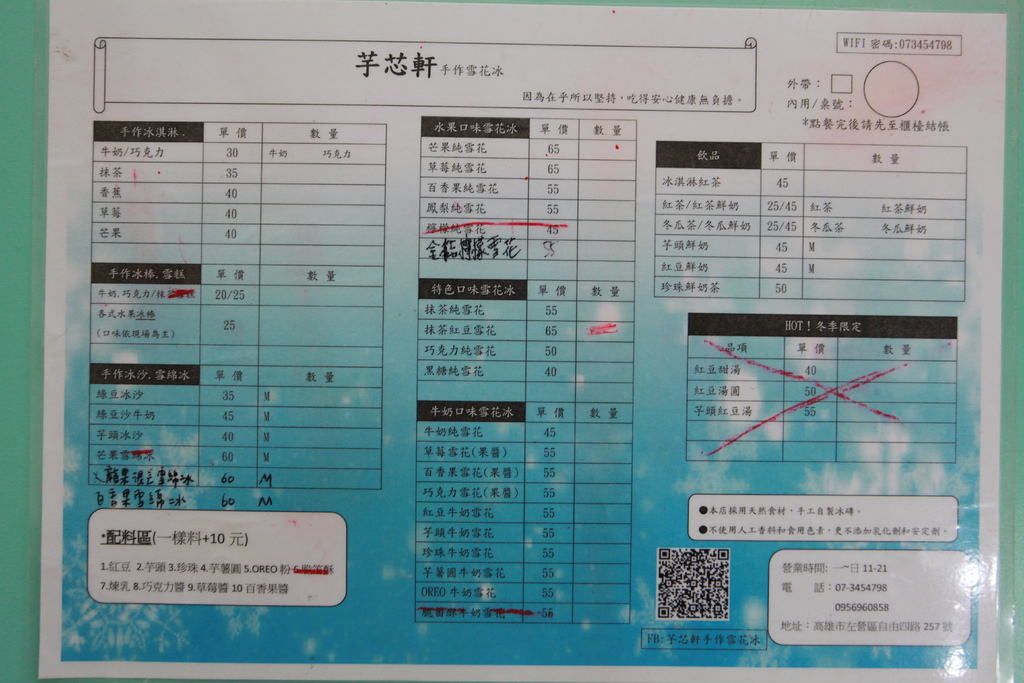 WIFI 密碼:073454798
芋芯軒手作雪花冰
因為在乎所以堅持,吃得安心健康無負擔。
外帶:
內用/桌號:
*點餐完後請先至櫃檯結帳
手作冰淇淋. 單 價 數 量
牛奶/巧克力 30 牛奶 巧克力
抹茶 35
香蕉 40
草莓 40
芒果 40
手作冰棒.雪糕 單 價 數 量
牛奶.巧克力/抹 20/25
各式水果冰棒
(口味依現場為主) 25
手作冰沙.雪綿冰 單 價 數 量
綠豆冰沙 35 M
綠豆沙牛奶 45 M
芋頭冰沙 40 M
芒果雪綿冰 60 M
雪綿冰 60 M
百香果雪綿冰 60 M
*配料區(一樣料+10 元)
1.紅豆 2.芋頭 3.珍珠 4.芋薯圓 5.OREO 粉 6.脆笛酥
7.煉乳 8.巧克力醬 9.草莓醬 10 百香果醬
水果口味雪花冰 單 價 數 量
芒果純雪花 65
草莓純雪花 65
百香果純雪花 55
鳳梨純雪花 55
檸檬純雪花 45
金桔檸檬雪花 55
特色口味雪花冰 單 價 數 量
抹茶純雪花 55
抹茶紅豆雪花 65
巧克力純雪花 50
黑糖純雪花 40
牛奶口味雪花冰 單 價 數 量
牛奶純雪花 45
草莓雪花(果醬) 55
百香果雪花(果醬) 55
巧克力雪花(果醬) 55
紅豆牛奶雪花 55
芋頭牛奶雪花 55
珍珠牛奶雪花 55
芋薯圓牛奶雪花 55
OREO 牛奶雪花 55
脆笛酥牛奶雪花 55
飲品 單 價 數 量
冰淇淋紅茶 45
紅茶/紅茶鮮奶 25/45 紅茶 紅茶鮮奶
冬瓜茶/冬瓜鮮奶 25/45 冬瓜茶 冬瓜鮮奶
芋頭鮮奶 45 M
紅豆鮮奶 45 M
珍珠鮮奶茶 50
HOT!冬季限定
品項 單 價 數 量
紅豆甜湯 40
紅豆湯圓 50
芋頭紅豆湯 55
●本店採用天然食材,手工自製冰磚。
●不使用人工香料和食用色素,更不添加乳化劑和安定劑。
營業時間:一~日 11-21
電 話:07-3454798
0956960858
地址:高雄市左營區自由四路 257 號
FB:芋芯軒手作雪花冰